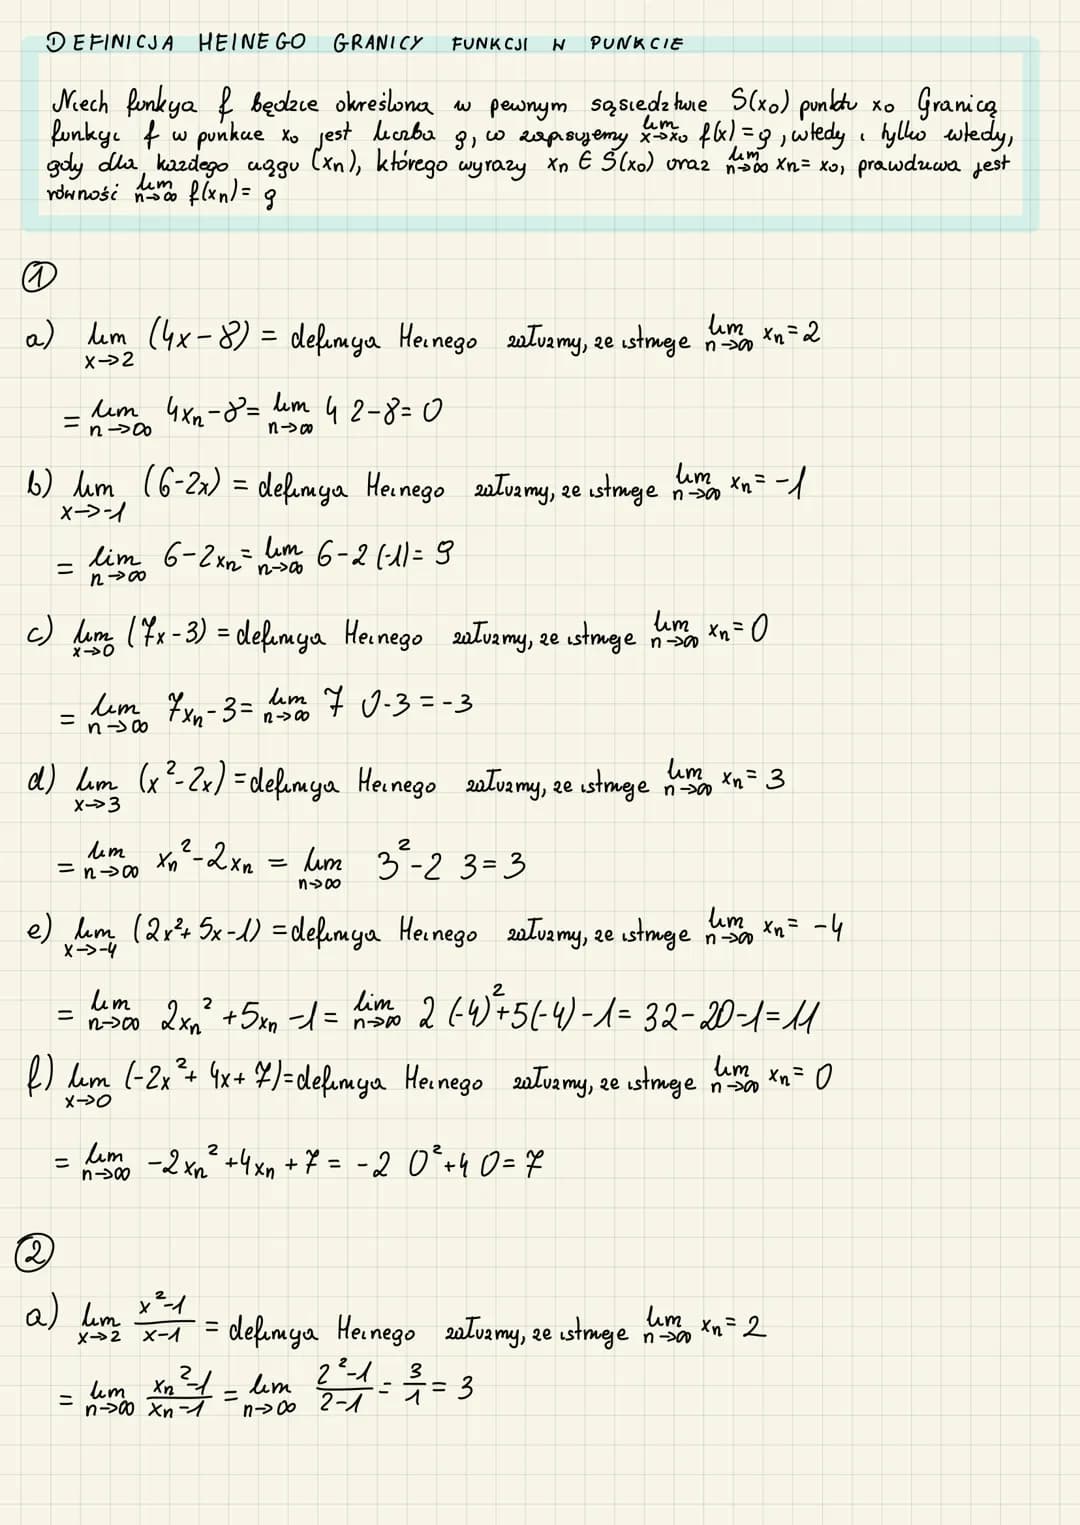 DEFINICJA HEINEGO GRANICY FUNKCJI W PUNKCIE
Niech funkcja f będzie określona w pewnym sąsiedztwie S(x₀) punktu x₀ Granicą
funkcji f w punkcie x₀ jest liczba g, co zapisujemy lim x→x₀ f(x) = g, wtedy i tylko wtedy,
gdy dla każdego ciągu (xₙ), którego wyrazy xₙ ∈ S(x₀) oraz lim n→∞ xₙ = x₀, prawdziwa jest
równość lim n→∞ f(xₙ) = g
①
a) lim x→2 (4x-8) = definicja Heinego załóżmy, że istnieje lim n→∞ xₙ = 2
= lim n→∞ 4xₙ-8 = lim n→∞ 4 2-8 = 0
b) lim x→-1 (6-2x) = definicja Heinego załóżmy, że istnieje lim n→∞ xₙ = -1
= lim n→∞ 6-2xₙ = lim n→∞ 6-2 (-1) = 9
c) lim x→0 (7x-3) = definicja Heinego załóżmy, że istnieje lim n→∞ xₙ = 0
= lim n→∞ 7xₙ-3 = lim n→∞ 7 0-3 = -3
d) lim x→3 (x²-2x) = definicja Heinego załóżmy, że istnieje lim n→∞ xₙ = 3
= lim n→∞ xₙ²-2xₙ = lim n→∞ 3²-2 3 = 3
e) lim x→-4 (2x²+5x-1) = definicja Heinego załóżmy, że istnieje lim n→∞ xₙ = -4
= lim n→∞ 2xₙ²+5xₙ-1 = lim n→∞ 2 (-4)²+5(-4)-1 = 32-20-1 = 11
f) lim x→0 (-2x²+4x+7) = definicja Heinego załóżmy, że istnieje lim n→∞ xₙ = 0
= lim n→∞ -2xₙ²+4xₙ+7 = -2 0²+4 0 = 7
②
a) lim x→2 (x²-1)/(x-1) = definicja Heinego załóżmy, że istnieje lim n→∞ xₙ = 2
= lim n→∞ (xₙ²-1)/(xₙ-1) = lim n→∞ (2²-1)/(2-1) = 3/1 = 3